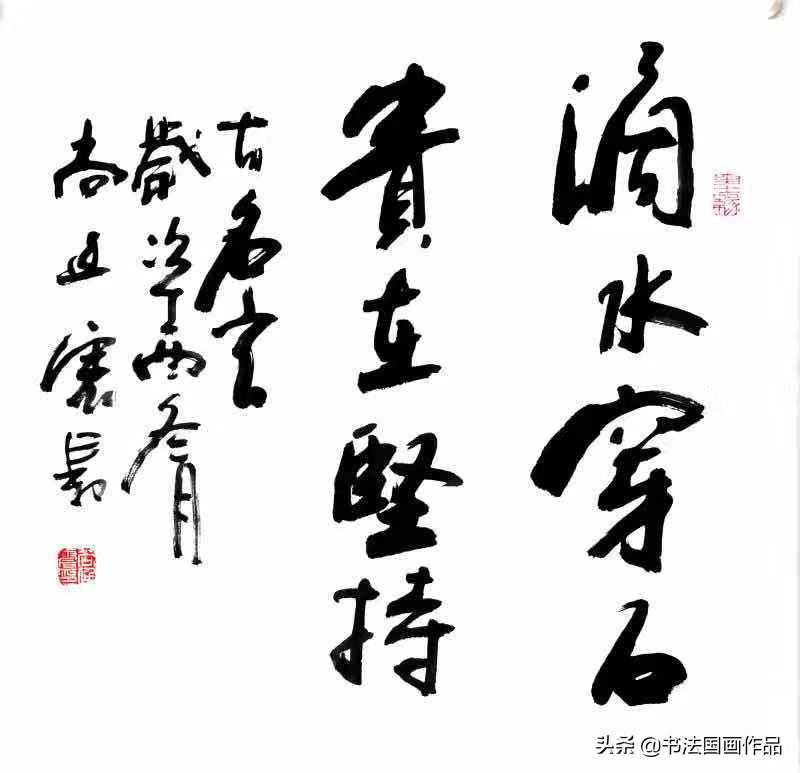 滴水穿石
貴在堅持
古名言
歲次丁酉冬月
尚
头条 @书法国画作品